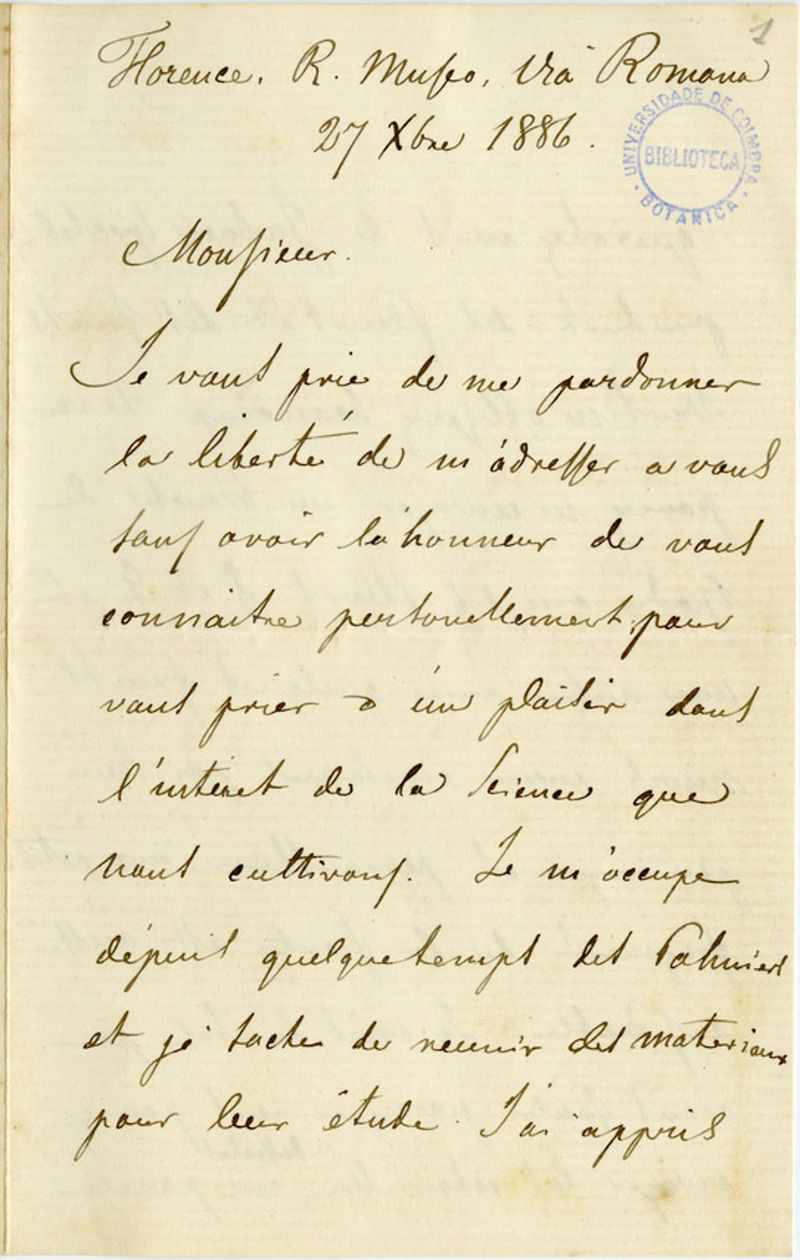 1
Florence. R. Museo, Via Romana
27 Xbre 1886.
UNIVERSIDADE DE COIMBRA
BIBLIOTECA
BOTANICA
Monsieur.
Je vous prie de me pardonner
la liberté de m'adresser a vous
sans avoir l'honneur de vous
connaitre personellement, pour
vous prier d'un plaisir dans
l'interet de la Science que
nous cultivons. Je m'occupe
dépuis quelque temps des Palmiers
et je tache de reunir des materiaux
pour leur étude. J'ai appris